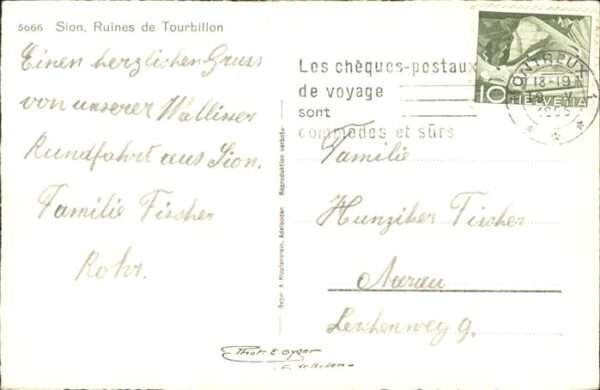 5666 Sion, Ruines de Tourbillon
Einen herzlichen Gruss
von unserer Walliser
Rundfahrt aus Sion.
Familie Fischer
Rohr.
Les chèques-postaux
de voyage
sont
commodes et sûrs
MONTREUX 1
18-19
V
10
HELVETIA
Familie
Hunziker Fischer
Aarau
Lerchenweg 9.
Reproduction verboten
Phot. E. Gyger